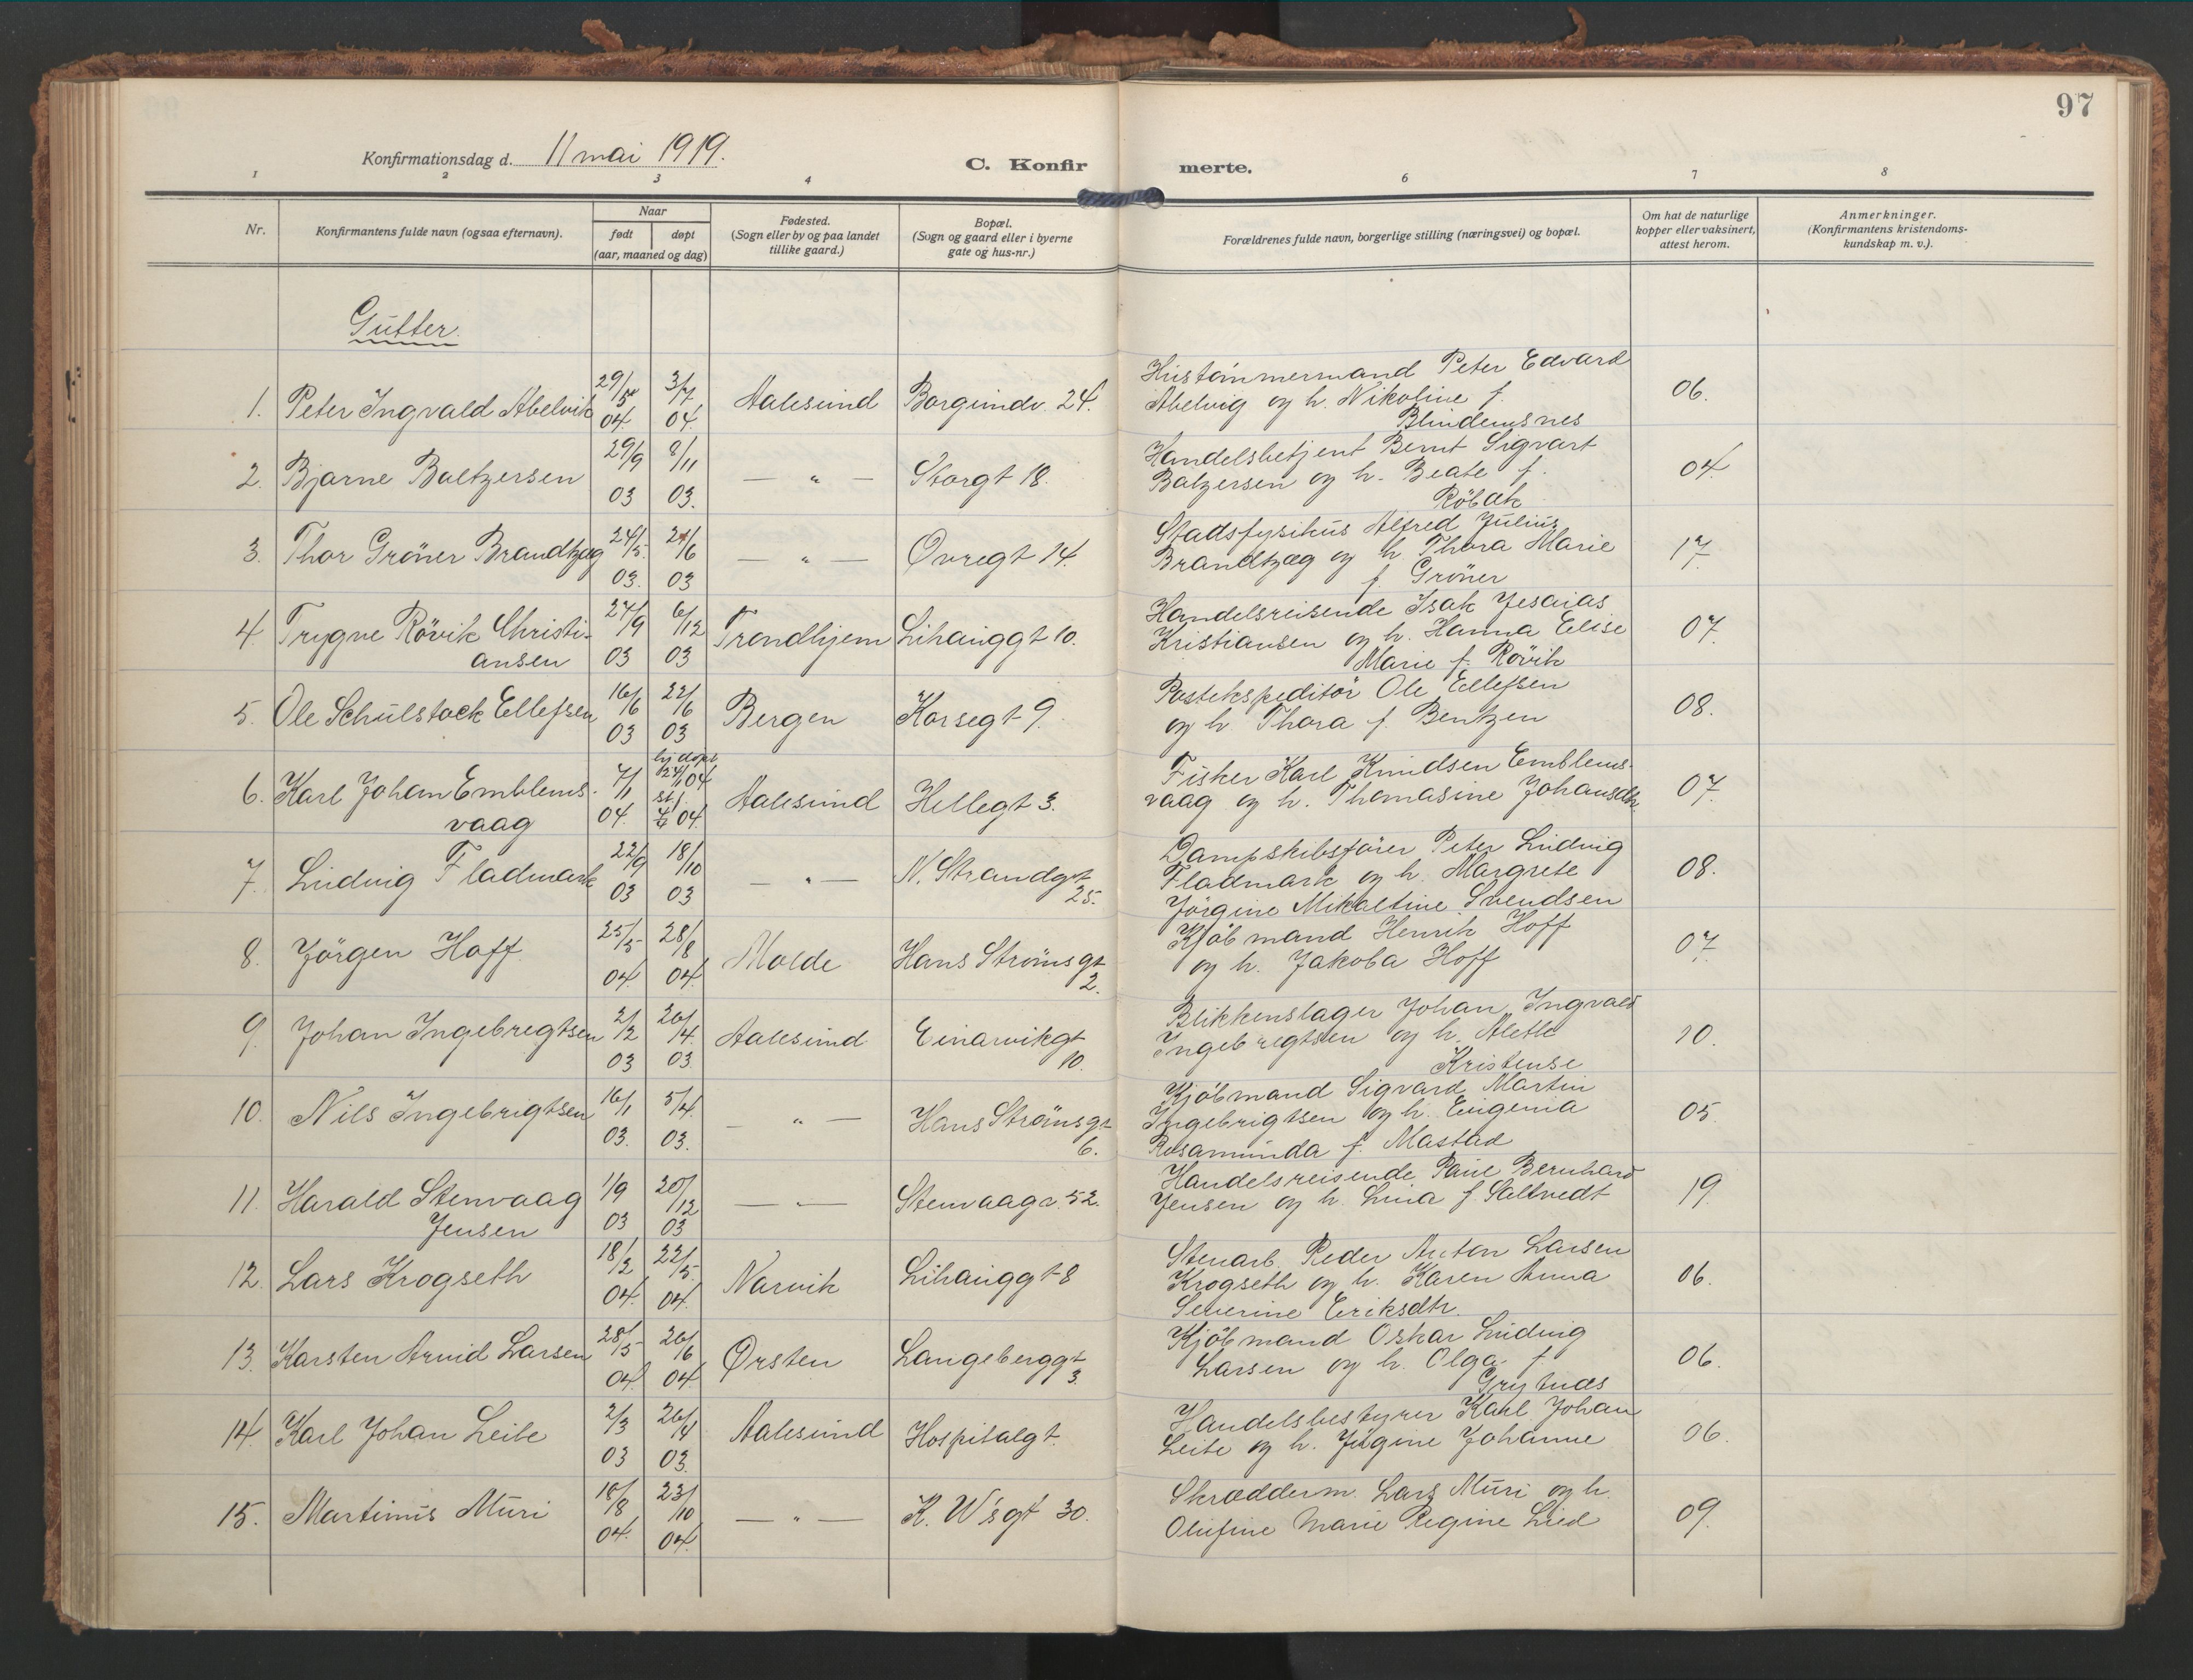 97
Konfirmationsdag d. 11 mai 1919.
C. Konfirmerte.
1 2 3 4 6 7 8
Nr.
Konfirmantens fulde navn (ogsaa efternavn).
Naar
født døpt
(aar, maaned og dag)
Fødested.
(Sogn eller by og paa landet
tillike gaard.)
Bopæl.
(Sogn og gaard eller i byerne
gate og hus-nr.)
Forældrenes fulde navn, borgerlige stilling (næringsvei) og bopæl.
Om hat de naturlige
kopper eller vaksinert,
attest herom.
Anmerkninger.
(Konfirmantens kristendoms-
kundskap m. v.).
Gutter.
1. Peter Ingvald Abelvik 29/5 04. 3/7 04. Aalesund Borgundv. 24. Hustømmermand Peter Edvard
Abelvig og h. Nikoline f.
Blindemsnes 06.
2. Bjarne Baltzersen 29/9 03 8/11 03. — " — Storgt 18. Handelsbetjent Bernt Sigvart
Balzersen og h. Beate f.
Röbek 04.
3. Thor Gröner Brandtzæg 24/5. 03. 21/6 03 — " — Øvregt 14. Stadsfysikus Alfred Julius
Brandtzæg og h. Thora Marie
f. Gröner 17.
4. Trygve Rövik Christi-
ansen 27/9 03 6/12 03 Trondhjem Lihauggt 10. Handelsreisende Isak Jesaias
Kristiansen og h. Hanna Elise
Marie f. Rövik 07.
5. Ole Schulstock Ellefsen 16/6 03 22/6 03 Bergen Korsegt 9. Postekspeditör Ole Ellefsen
og h Thora f. Bentzen 08.
6. Karl Johan Emblems-
vaag 7/1 04. hj døpt 24/1 04 st. 4/4 04. Aalesund Hellegt 3. Fisker Karl Knudsen Emblems-
vaag og h. Thomasine Johansdtr 07.
7. Ludvig Fladmark 22/9 03 18/10 03 — " — N. Strandgt
25. Dampskibsfører Peter Ludvig
Fladmark og h. Margrete
Jörgine Mikaeltine Svendsen 08.
8. Jörgen Hoff 25/5 04. 28/8 04. Molde Hans Ströms gt
2. Kjöbmand Henrik Hoff
og h. Jakoba Hoff 07.
9. Johan Ingebregtsen 2/2 03 26/4. 03. Aalesund Einarvikgt
10. Blikkenslager Johan Ingvald
Ingebregtsen og h. Alette
Kristense 10.
10. Nils Ingebrigtsen 16/1 03. 5/4. 03. — " — Hans Ströms gt
6. Kjöbmand Sigvard Martin
Ingebrigtsen og h. Eugenia
Rosamunda f. Mastad 05.
11. Harald Stenvaag
Jensen 1/9 03 20/12 03 — " — Stenvaagv. 52. Handelsreisende Paul Bernhard
Jensen og h. Lina f. Saltvedt 19.
12. Lars Krogseth 18/2 04. 22/5. 04. Narvik Lihauggt 8 Stenarb. Peder Anton Larsen
Krogseth og h. Karen Anna
Severine Eriksdtr. 06.
13. Karsten Arvid Larsen 28/5 04. 26/6 04. Ørsten Langeberggt
3. Kjöbmand Oskar Ludvig
Larsen og h. Olga f
Grytnes 06.
14. Karl Johan Leite 2/3 03 26/4 03. Aalesund Hospitalgt. Handelsbestyrer Karl Johan
Leite og h. Jörgine Johanne 06.
15. Martinus Muri 18/8 04. 23/10 04. — " — K. W's gt 30. Skrædderm. Lars Muri og h.
Olufine Marie Regine Lied 09.